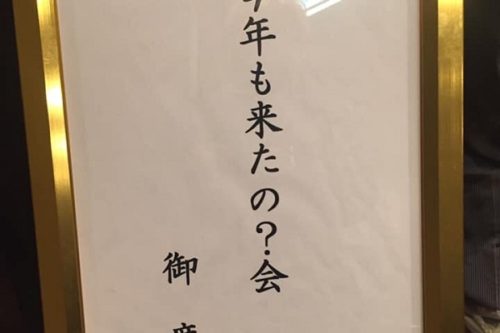 年も来たの？会
御